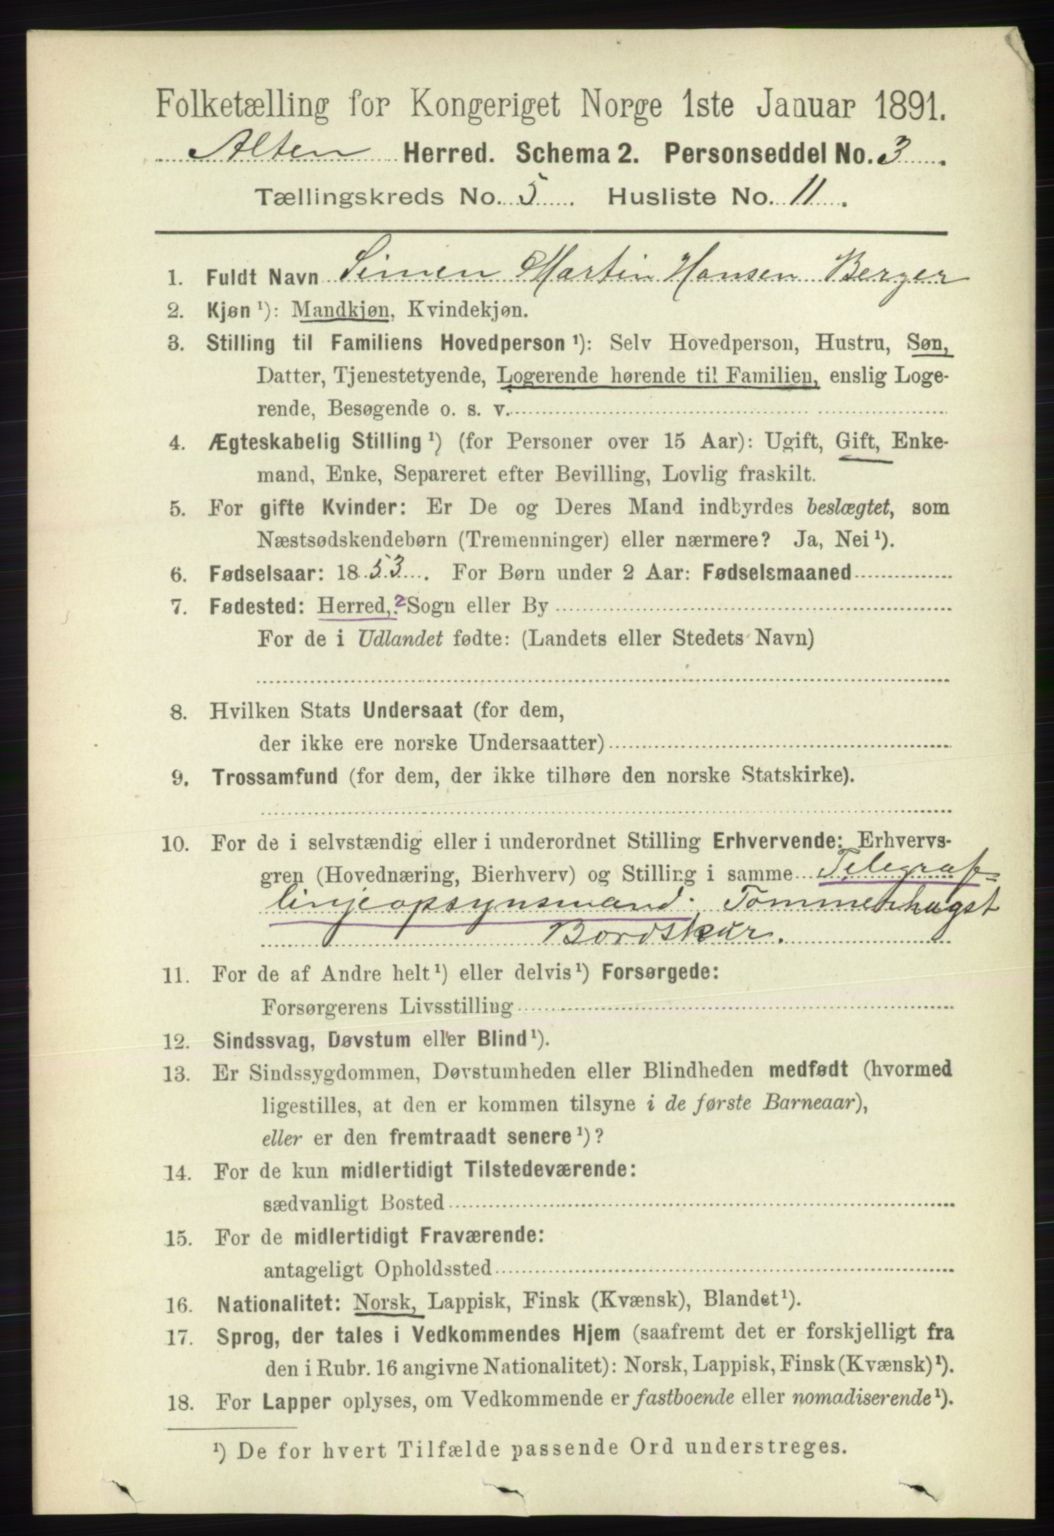 Folketælling for Kongeriget Norge 1ste Januar 1891.
Alten Herred. Schema 2. Personseddel No. 3.
Tællingskreds No. 5. Husliste No. 11.
1. Fuldt Navn Simen Martin Hansen Berger
2. Kjøn ¹): Mandkjøn, Kvindekjøn.
3. Stilling til Familiens Hovedperson ¹): Selv Hovedperson, Hustru, Søn,
Datter, Tjenestetyende, Logerende hørende til Familien, enslig Loge-
rende, Besøgende o. s. v.
4. Ægteskabelig Stilling ¹) (for Personer over 15 Aar): Ugift, Gift, Enke-
mand, Enke, Separeret efter Bevilling, Lovlig fraskilt.
5. For gifte Kvinder: Er De og Deres Mand indbyrdes beslægtet, som
Næstsødskendebørn (Tremenninger) eller nærmere? Ja, Nei ¹).
6. Fødselsaar: 1853. For Børn under 2 Aar: Fødselsmaaned
7. Fødested: Herred, ? Sogn eller By
For de i Udlandet fødte: (Landets eller Stedets Navn)
8. Hvilken Stats Undersaat (for dem,
der ikke ere norske Undersaatter)
9. Trossamfund (for dem, der ikke tilhøre den norske Statskirke).
10. For de i selvstændig eller i underordnet Stilling Erhvervende: Erhvervs-
gren (Hovednæring, Bierhverv) og Stilling i samme Telegraf-
linjeopsynsmand. Tømmerhugst
Bordskur.
11. For de af Andre helt ¹) eller delvis ¹) Forsørgede:
Forsørgerens Livsstilling
12. Sindssvag, Døvstum eller Blind ¹).
13. Er Sindssygdommen, Døvstumheden eller Blindheden medfødt (hvormed
ligestilles, at den er kommen tilsyne i de første Barneaar),
eller er den fremtraadt senere ¹)?
14. For de kun midlertidigt Tilstedeværende:
sædvanligt Bosted
15. For de midlertidigt Fraværende:
antageligt Opholdssted
16. Nationalitet: Norsk, Lappisk, Finsk (Kvænsk), Blandet ¹).
17. Sprog, der tales i Vedkommendes Hjem (saafremt det er forskjelligt fra
den i Rubr. 16 angivne Nationalitet): Norsk, Lappisk, Finsk (Kvænsk) ¹).
18. For Lapper oplyses, om Vedkommende er fastboende eller nomadiserende ¹).
¹) De for hvert Tilfælde passende Ord understreges.